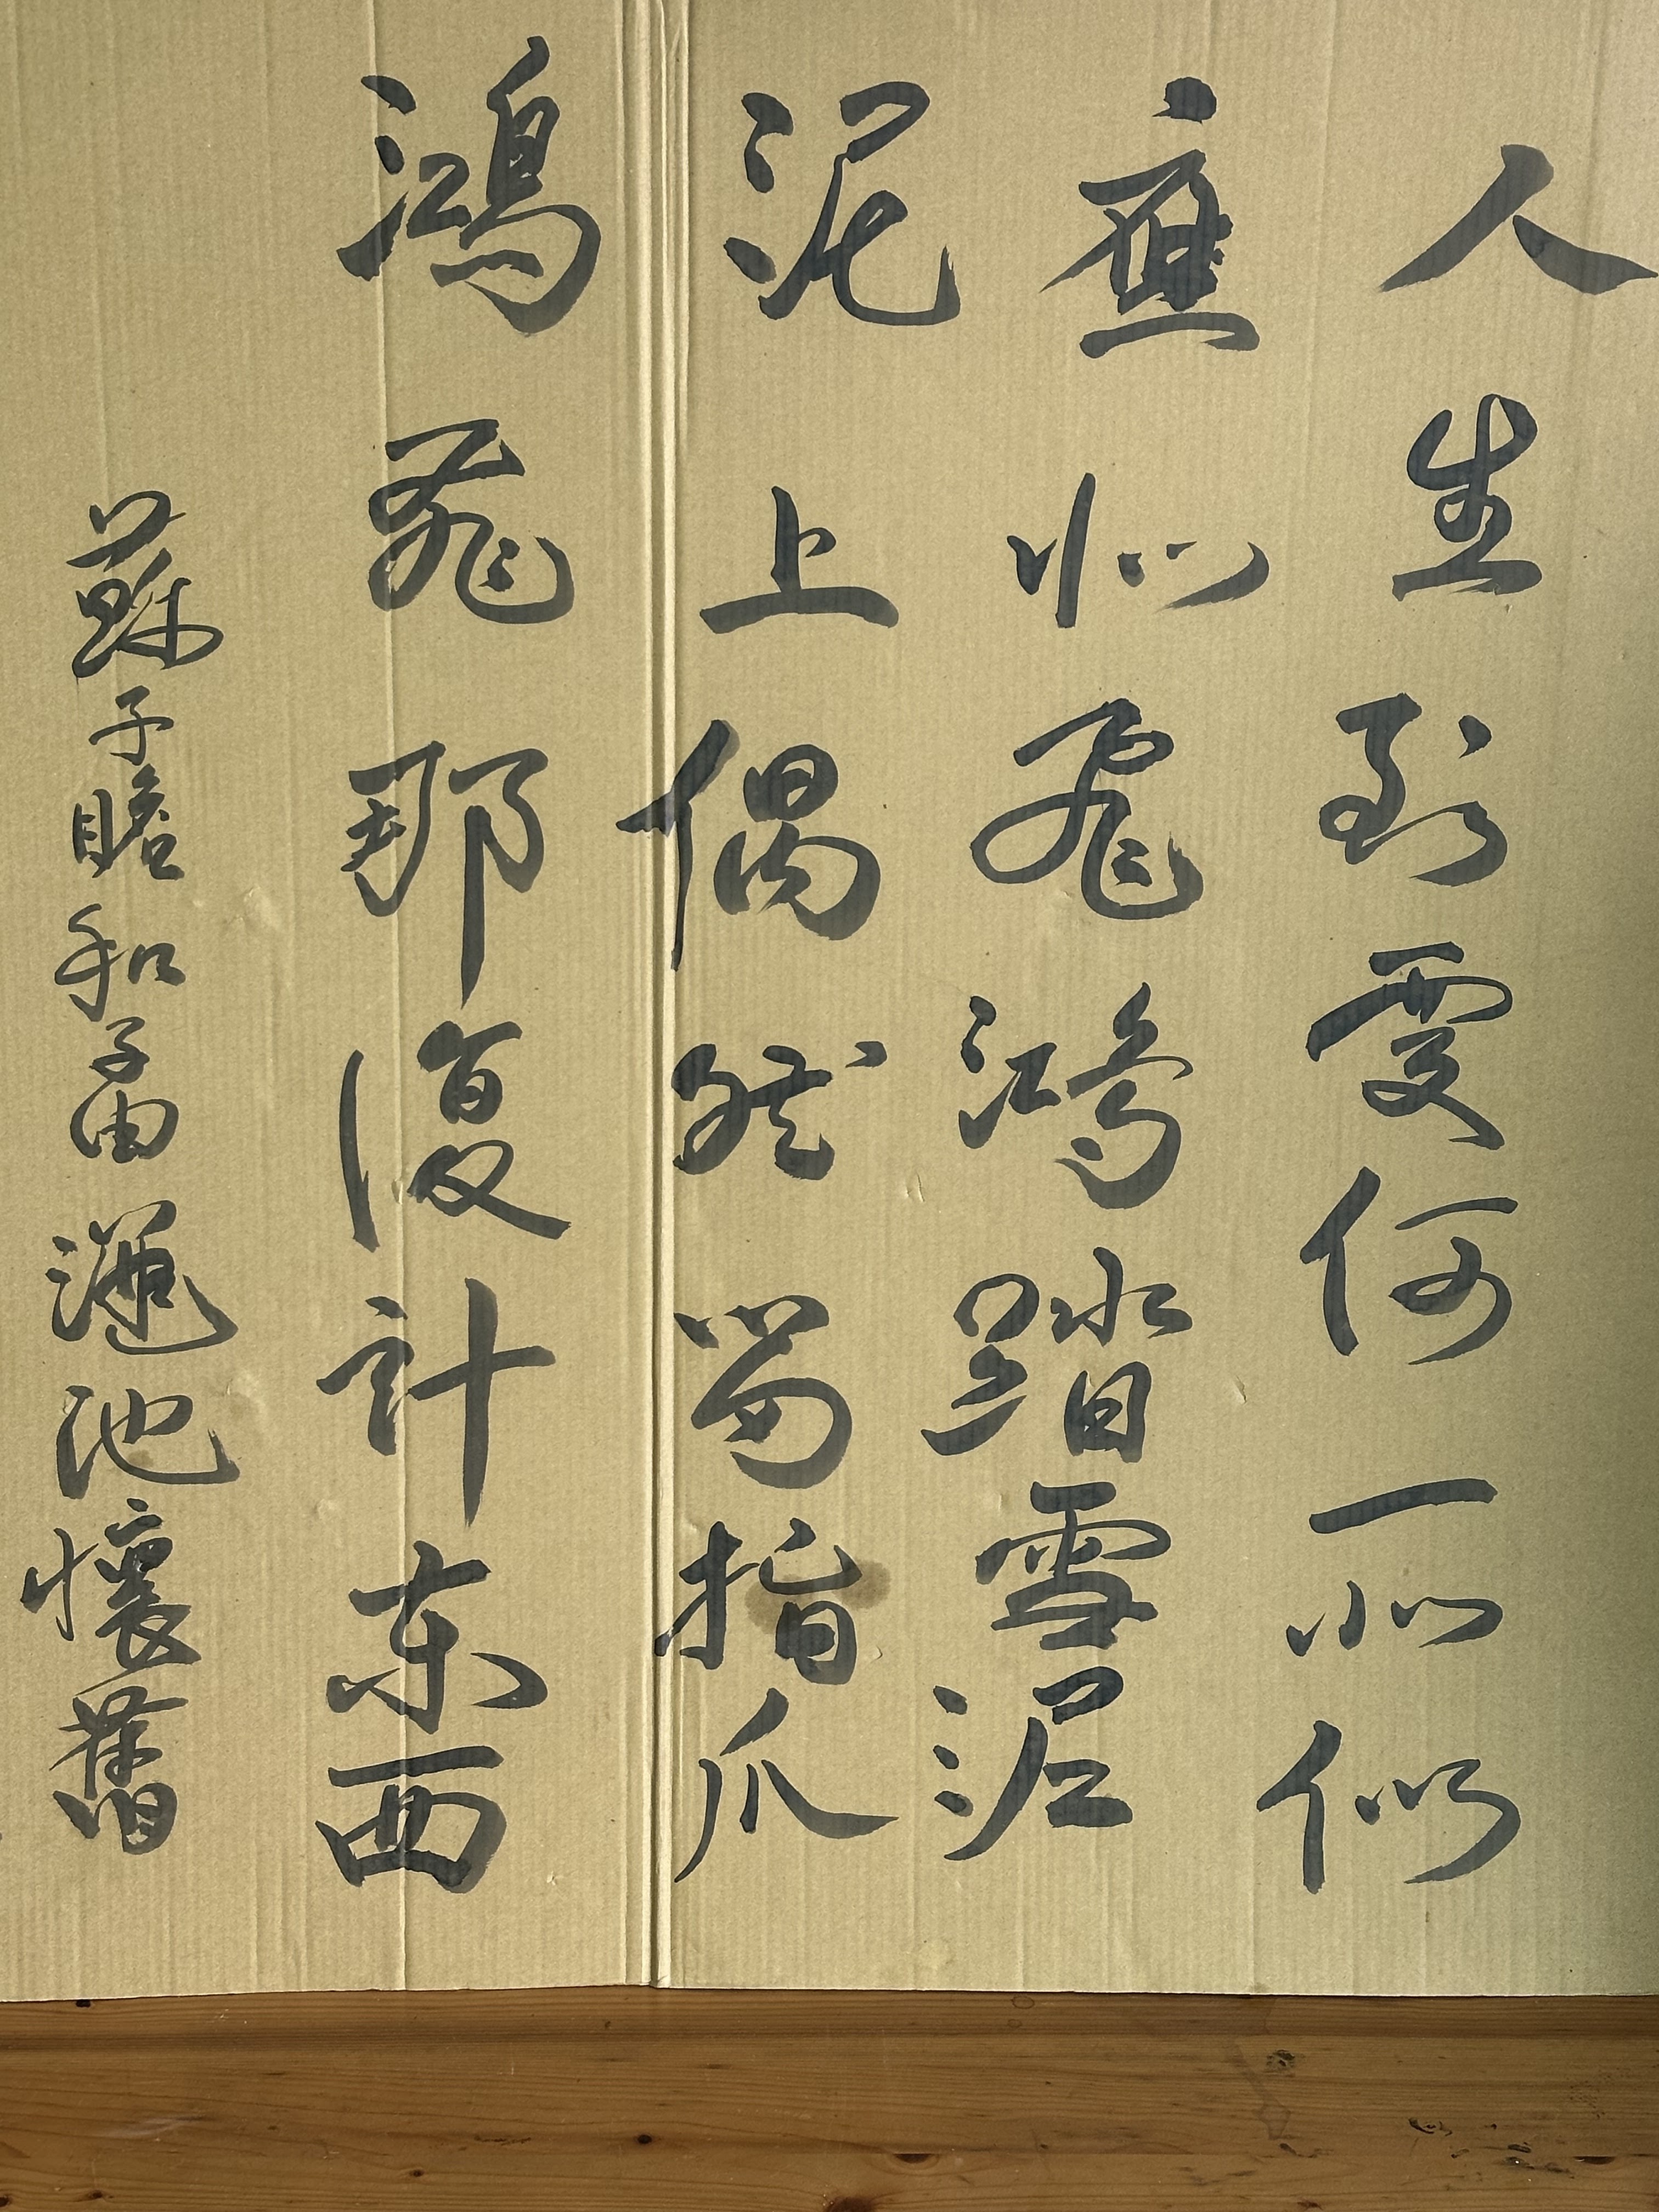 人生到處何所似
應似飛鴻踏雪泥
泥上偶然留指爪
鴻飛那復計東西
蘇子瞻和子由澠池懷舊